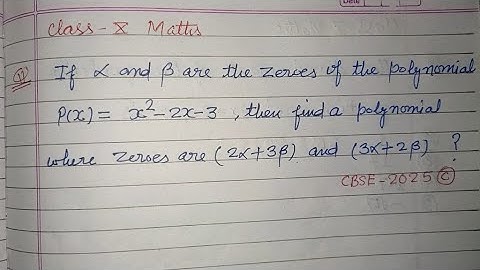 Class - X Maths
Q If α and β are the zeroes of the polynomial
P(x) = x² - 2x - 3 , then find a polynomial
where zeroes are (2α+3β) and (3α+2β) ?
CBSE - 2025 C